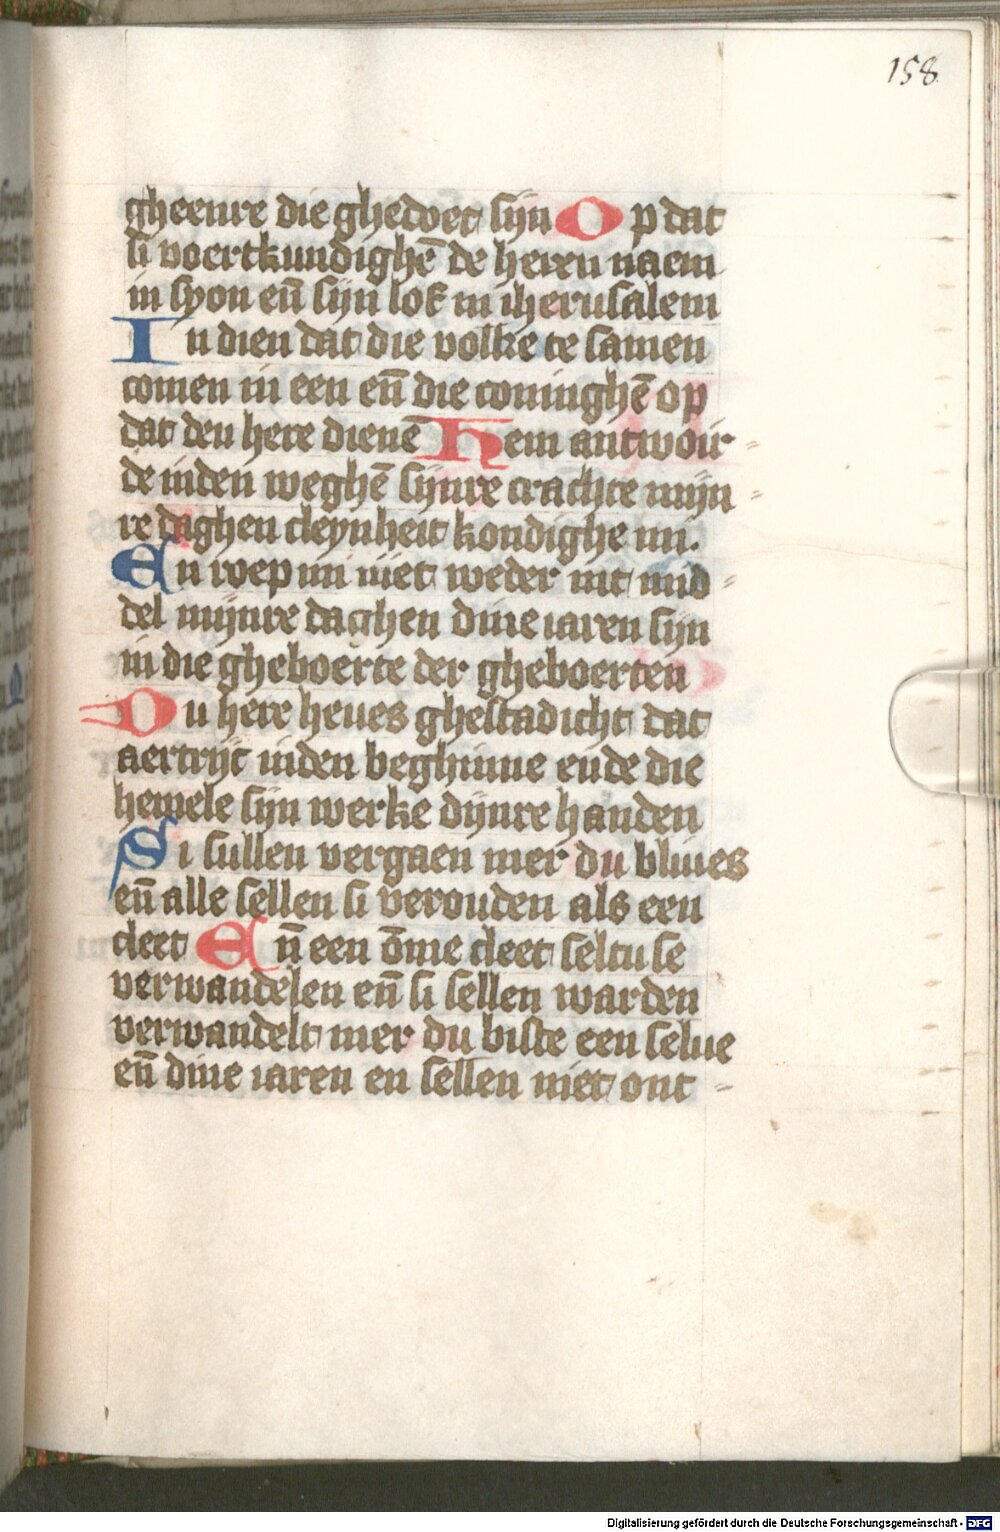 158
gheenre die ghedoet sijn Op dat
si voertkundighē de heren naem
in syon eñ sijn lof in iherusalem
In dien dat die volke te samen
comen in een eñ die coninghē op
dat den here dienē Hem antwoir-
de inden weghē sijnre crachte mijn
re daghen cleynheit kondighe mi.
En roep mi niet weder mit mid-
del mijnre daghen dine iaren sijn
in die gheboerte der gheboerten
Du here heues ghestadicht dat
aertrijc inden beghinne ende die
hemele sijn werke dijnre handen
Si sullen vergaen mer du bliues
eñ alle sellen si verouden als een
cleet Eñ een ōme cleet seltu se
verwandelen eñ si sellen warden
verwandelt mer du biste een selue
eñ dine iaren en sellen niet ont-
Digitalisierung gefördert durch die Deutsche Forschungsgemeinschaft - DFG